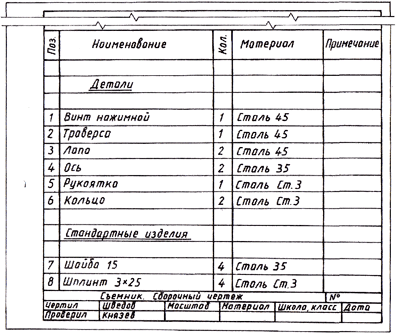 Поз. Наименование Кол. Материал Примечание
Детали
1 Винт нажимной 1 Сталь 45
2 Траверса 1 Сталь 45
3 Лапа 2 Сталь 45
4 Ось 2 Сталь 35
5 Рукоятка 1 Сталь Ст.3
6 Кольцо 2 Сталь Ст.3
Стандартные изделия
7 Шайба 15 4 Сталь 35
8 Шплинт 3×25 4 Сталь Ст.3
Съемник. Сборочный чертеж №
Чертил Шведов Масштаб Материал Школа, класс Дата
Проверил Князев